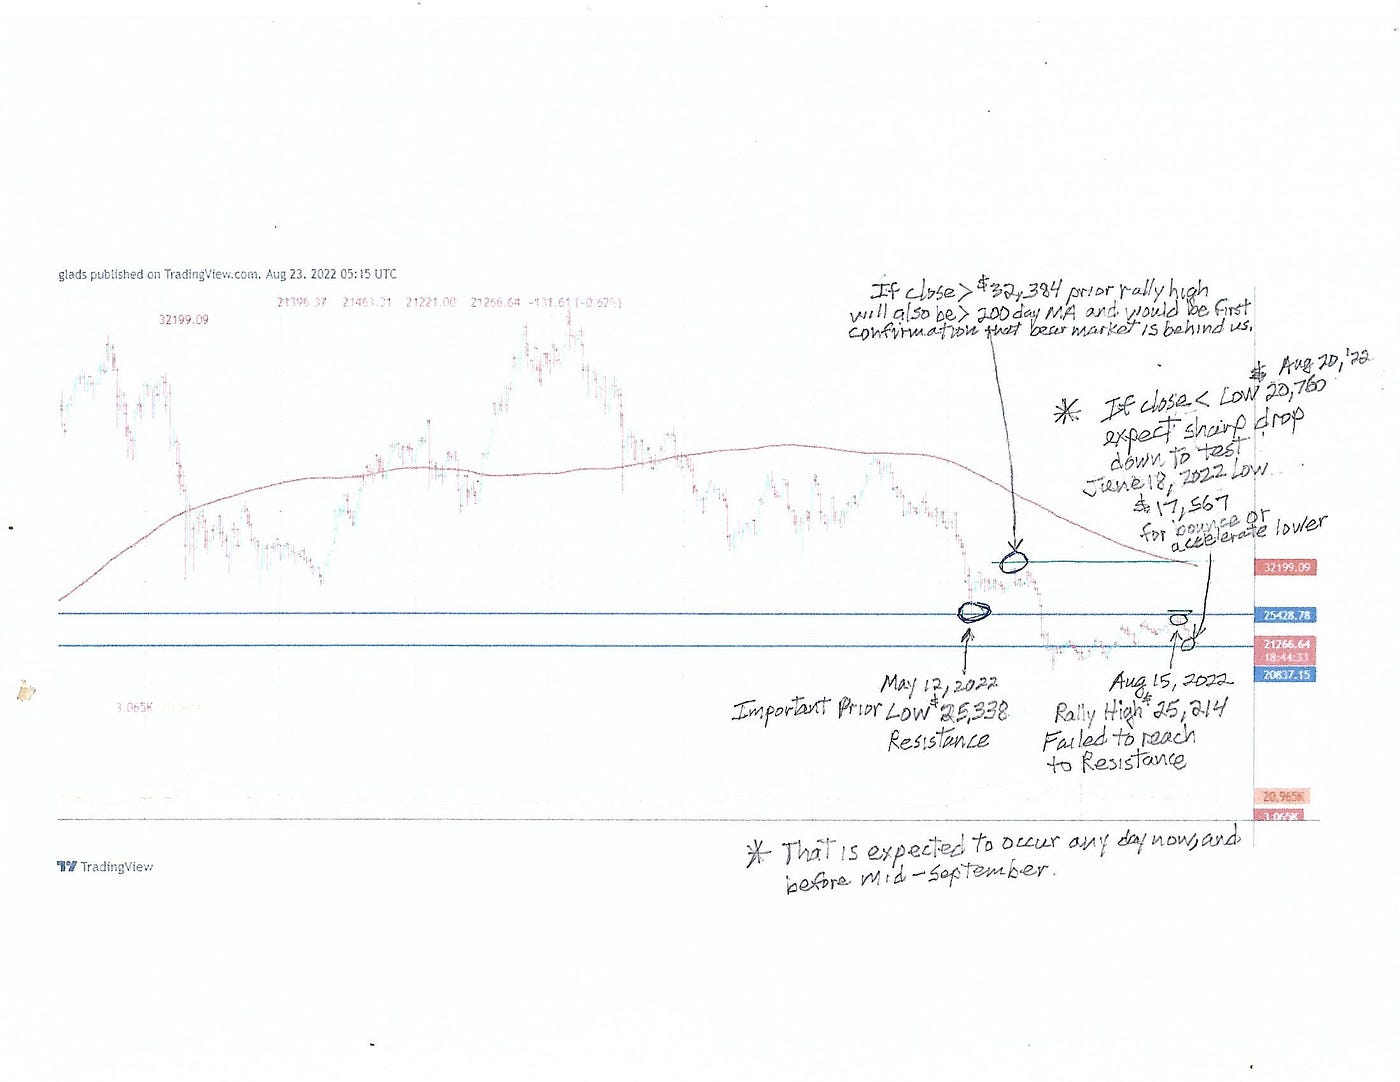 glads published on TradingView.com, Aug 23, 2022 05:15 UTC
21396.37 21463.31 21221.00 21266.64 -131.61 (-0.62%)
32199.09
If close > $32,384 prior rally high
will also be > 200 day MA and would be first
confirmation that bear market is behind us.
$ Aug 20, '22
* If close < Low 20,760
expect sharp drop
down to test
June 18, 2022 Low
$17,567
for bounce or
accelerate lower
32199.09
25428.78
21266.64
18:44:33
20837.15
May 12, 2022
Important Prior Low $25,338
Resistance
Aug 15, 2022
Rally High $25,214
Failed to reach
to Resistance
3.065K 20.965K
20.965K
3.065K
* That is expected to occur any day now, and
before mid-September.
TradingView